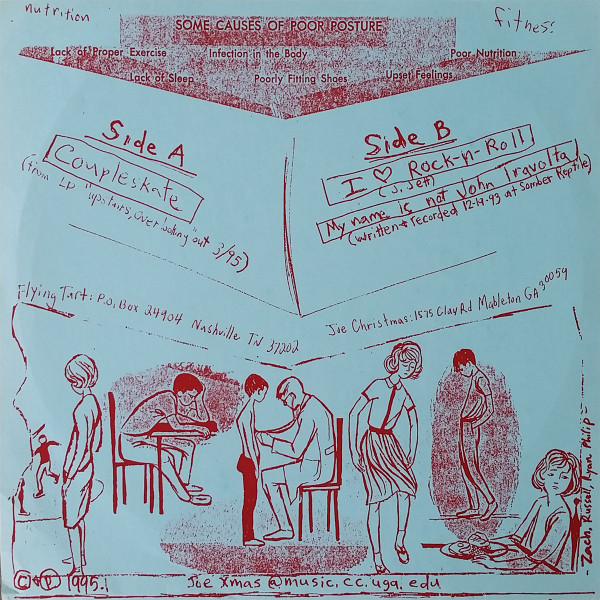 nutrition
fitness
SOME CAUSES OF POOR POSTURE
Lack of Proper Exercise
Infection in the Body
Poor Nutrition
Lack of Sleep
Poorly Fitting Shoes
Upset Feelings
Side A
Coupleskate
(from LP "Upstairs, Overlooking" out 3/95)
Side B
I ♡ Rock-n-Roll
(J. Jett)
My name is not John Travolta
(written & recorded 12-14-93 at Somber Reptile)
Flying Tart: P.O. Box 24904 Nashville TN 37202
Joe Christmas: 1575 Clay Rd Mableton GA 30059
- Zach, Russel, Ryan Philip -
© & ℗ 1995.
Joe Xmas @ music.cc.uga.edu